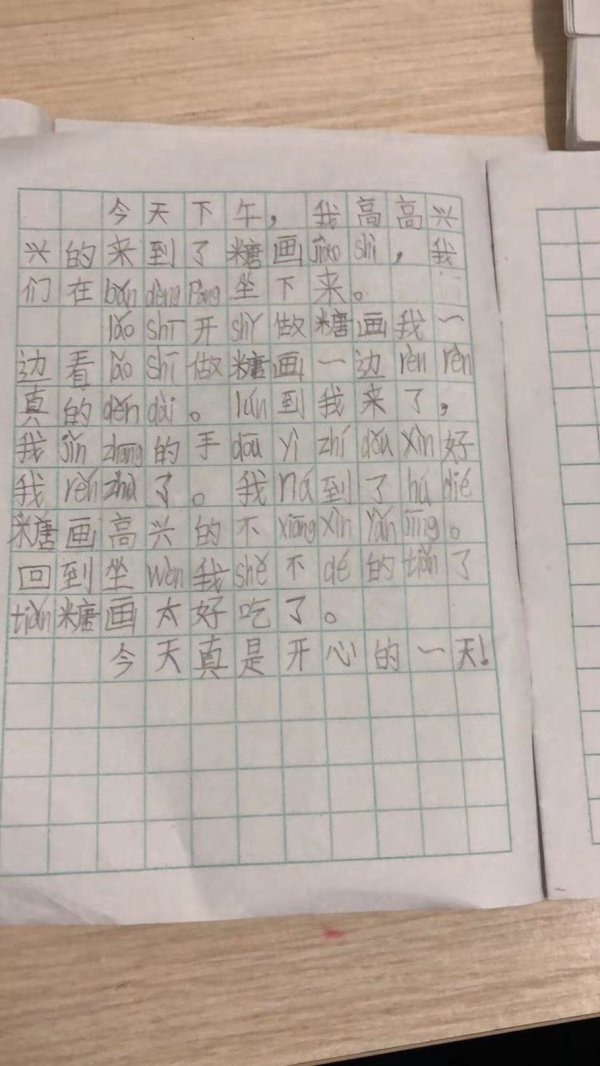 今天下午，我高高兴
兴的来到了糖画jiào shì，我
们在bǎn dèng páng坐下来。
lǎo shī开shǐ做糖画我一
边看lǎo shī做糖画一边rèn rèn
真的děn dài。lún到我来了，
我jǐn zhāng的手dōu yì zhí dǒu xìn好
我rěn zhù了。我ná到了hú dié
糖画高兴的不xiāng xìn yǎn jīng。
回到坐wèn我shě不dé的tiǎn了
tiǎn糖画太好吃了。
今天真是开心的一天!